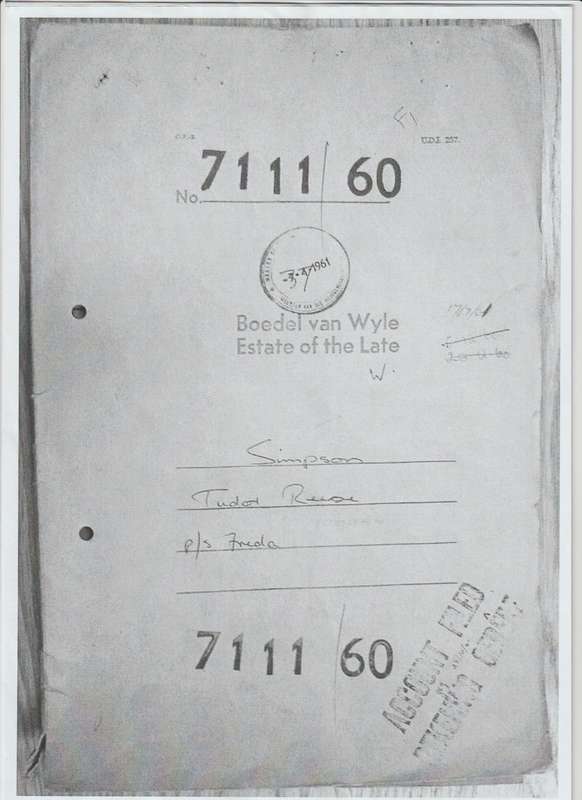 U.D.J. 257.
No. 7111/60
-5-4-1961
Boedel van Wyle
Estate of the Late
W.
17/7/61
Simpson
Tudor Reese
p/s Freda
7111/60
ACCOUNT FILED